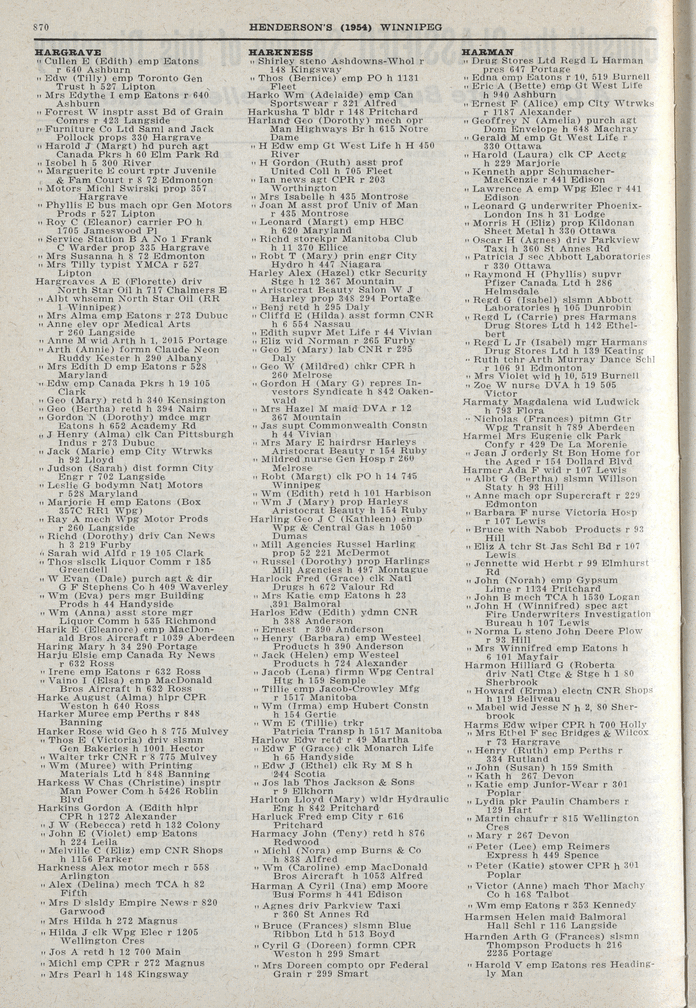 870
HENDERSON'S (1954) WINNIPEG
HARGRAVE
" Cullen E (Edith) emp Eatons
r 640 Ashburn
" Edw (Tilly) emp Toronto Gen
Trust h 527 Lipton
" Mrs Edythe I emp Eatons r 640
Ashburn
" Forrest W insptr asst Bd of Grain
Comrs r 423 Langside
" Furniture Co Ltd Saml and Jack
Pollock props 330 Hargrave
" Harold J (Margt) hd purch agt
Canada Pkrs h 60 Elm Park Rd
" Isobel h 5 300 River
" Marguerite E court rptr Juvenile
& Fam Court r 8 72 Edmonton
" Motors Michl Swirski prop 357
Hargrave
" Phyllis E bus mach opr Gen Motors
Prods r 527 Lipton
" Roy C (Eleanor) carrier PO h
1705 Jameswood Pl
" Service Station B A No 1 Frank
C Warder prop 335 Hargrave
" Mrs Susanna h 8 72 Edmonton
" Mrs Tilly typist YMCA r 527
Lipton
Hargreaves A E (Florette) driv
North Star Oil h 717 Chalmers E
" Albt whsemn North Star Oil (RR
1 Winnipeg)
" Mrs Alma emp Eatons r 273 Dubuc
" Anne elev opr Medical Arts
r 260 Langside
" Anne M wid Arth h 1, 2015 Portage
" Arth (Annie) formn Claude Neon
Ruddy Kester h 290 Albany
" Mrs Edith D emp Eatons r 528
Maryland
" Edw emp Canada Pkrs h 19 105
Clark
" Geo (Mary) retd h 340 Kensington
" Geo (Bertha) retd h 394 Nairn
" Gordon N (Dorothy) mdce mgr
Eatons h 652 Academy Rd
" J Henry (Alma) clk Can Pittsburgh
Indus r 273 Dubuc
" Jack (Marie) emp City Wtrwks
h 92 Lloyd
" Judson (Sarah) dist formn City
Engr r 702 Langside
" Leslie G bodymn Natl Motors
r 528 Maryland
" Marjorie H emp Eatons (Box
357C RR1 Wpg)
" Ray A mech Wpg Motor Prods
r 260 Langside
" Richd (Dorothy) driv Can News
h 3 219 Furby
" Sarah wid Alfd r 19 105 Clark
" Thos slsclk Liquor Comm r 185
Greendell
" W Evan (Dale) purch agt & dir
G F Stephens Co h 409 Waverley
" Wm (Eva) pers mgr Building
Prods h 44 Handyside
" Wm (Anna) asst store mgr
Liquor Comm h 535 Richmond
Harik E (Eleanore) emp MacDon-
ald Bros Aircraft r 1039 Aberdeen
Haring Mary h 34 290 Portage
Harju Elsie emp Canada Ry News
r 632 Ross
" Irene emp Eatons r 632 Ross
" Vaino I (Elsa) emp MacDonald
Bros Aircraft h 632 Ross
Harke August (Alma) hlpr CPR
Weston h 640 Ross
Harker Muree emp Perths r 848
Banning
Harker Rose wid Geo h 8 775 Mulvey
" Thos E (Victoria) driv slsmn
Gen Bakeries h 1001 Hector
" Walter trkr CNR r 8 775 Mulvey
" Wm (Muree) with Printing
Materials Ltd h 848 Banning
Harkess W Chas (Christine) insptr
Man Power Com h 5426 Roblin
Blvd
Harkins Gordon A (Edith hlpr
CPR h 1272 Alexander
" J W (Rebecca) retd h 132 Colony
" John E (Violet) emp Eatons
h 224 Leila
" Melville C (Eliz) emp CNR Shops
h 1156 Parker
Harkness Alex motor mech r 558
Arlington
" Alex (Delina) mech TCA h 82
Fifth
" Mrs D slsldy Empire News r 820
Garwood
" Mrs Hilda h 272 Magnus
" Hilda J clk Wpg Elec r 1205
Wellington Cres
" Jos A retd h 12 700 Main
" Michl emp CPR r 272 Magnus
" Mrs Pearl h 148 Kingsway
HARKNESS
" Shirley steno Ashdowns-Whol r
148 Kingsway
" Thos (Bernice) emp PO h 1131
Fleet
Harko Wm (Adelaide) emp Can
Sportswear r 321 Alfred
Harkusha T bldr r 148 Pritchard
Harland Geo (Dorothy) mech opr
Man Highways Br h 615 Notre
Dame
" H Edw emp Gt West Life h H 450
River
" H Gordon (Ruth) asst prof
United Coll h 705 Fleet
" Ian news agt CPR r 203
Worthington
" Mrs Isabelle h 435 Montrose
" Joan M asst prof Univ of Man
r 435 Montrose
" Leonard (Margt) emp HBC
h 620 Maryland
" Richd storekpr Manitoba Club
h 11 370 Ellice
" Robt T (Mary) prin engr City
Hydro h 447 Niagara
Harley Alex (Hazel) ctkr Security
Stge h 12 367 Mountain
" Aristocrat Beauty Salon W J
Harley prop 348 294 Portage
" Benj retd h 295 Daly
" Cliffd E (Hilda) asst formn CNR
h 6 554 Nassau
" Edith supvr Met Life r 44 Vivian
" Eliz wid Norman r 265 Furby
" Geo E (Mary) lab CNR r 295
Daly
" Geo W (Mildred) chkr CPR h
260 Melrose
" Gordon H (Mary G) repres In-
vestors Syndicate h 842 Oaken-
wald
" Mrs Hazel M maid DVA r 12
367 Mountain
" Jas supt Commonwealth Constn
h 44 Vivian
" Mrs Mary E hairdrsr Harleys
Aristocrat Beauty r 154 Ruby
" Mildred nurse Gen Hosp r 260
Melrose
" Robt (Margt) clk PO h 14 745
Winnipeg
" Wm (Edith) retd h 101 Harbison
" Wm J (Mary) prop Harleys
Aristocrat Beauty h 154 Ruby
Harling Geo J C (Kathleen) emp
Wpg & Central Gas h 1050
Dumas
" Mill Agencies Russel Harling
prop 52 221 McDermot
" Russel (Dorothy) prop Harlings
Mill Agencies h 497 Montague
Harlock Fred (Grace) clk Natl
Drugs h 672 Valour Rd
" Mrs Katie emp Eatons h 23
,391 Balmoral
Harlos Edw (Edith) ydmn CNR
h 388 Anderson
" Ernest r 390 Anderson
" Henry (Barbara) emp Westeel
Products h 390 Anderson
" Jack (Helen) emp Westeel
Products h 724 Alexander
" Jacob (Lena) firmn Wpg Central
Htg h 159 Semple
" Tillie emp Jacob-Crowley Mfg
r 1517 Manitoba
" Wm (Irma) emp Hubert Constn
h 154 Gertie
" Wm E (Tillie) trkr
Patricia Transp h 1517 Manitoba
Harlow Edw retd r 49 Martha
" Edw F (Grace) clk Monarch Life
h 65 Handyside
" Edw J (Ethel) clk Ry M S h
244 Scotia
" Jos lab Thos Jackson & Sons
r 9 Elkhorn
Harlton Lloyd (Mary) wldr Hydraulic
Eng h 842 Pritchard
Harluck Fred emp City r 616
Pritchard
Harmacy John (Teny) retd h 876
Redwood
" Michl (Nora) emp Burns & Co
h 838 Alfred
" Wm (Caroline) emp MacDonald
Bros Aircraft h 1053 Alfred
Harman A Cyril (Ina) emp Moore
Bus Forms h 441 Edison
" Agnes driv Parkview Taxi
r 360 St Annes Rd
" Bruce (Frances) slsmn Blue
Ribbon Ltd h 513 Boyd
" Cyril G (Doreen) formn CPR
Weston h 299 Smart
" Mrs Doreen compto opr Federal
Grain r 299 Smart
HARMAN
" Drug Stores Ltd Regd L Harman
pres 647 Portage
" Edna emp Eatons r 10, 519 Burnell
" Eric A (Bette) emp Gt West Life
h 940 Ashburn
" Ernest F (Alice) emp City Wtrwks
r 1187 Alexander
" Geoffrey N (Amelia) purch agt
Dom Envelope h 648 Machray
" Gerald M emp Gt West Life r
330 Ottawa
" Harold (Laura) clk CP Acctg
h 229 Marjorie
" Kenneth appr Schumacher-
MacKenzie r 441 Edison
" Lawrence A emp Wpg Elec r 441
Edison
" Leonard G underwriter Phoenix-
London Ins h 31 Lodge
" Morris H (Eliz) prop Kildonan
Sheet Metal h 330 Ottawa
" Oscar H (Agnes) driv Parkview
Taxi h 360 St Annes Rd
" Patricia J sec Abbott Laboratories
r 330 Ottawa
" Raymond H (Phyllis) supvr
Pfizer Canada Ltd h 286
Helmsdale
" Regd G (Isabel) slsmn Abbott
Laboratories h 105 Dunrobin
" Regd L (Carrie) pres Harmans
Drug Stores Ltd h 142 Ethel-
bert
" Regd L Jr (Isabel) mgr Harmans
Drug Stores Ltd h 139 Keating
" Ruth tchr Arth Murray Dance Schl
r 106 91 Edmonton
" Mrs Violet wid h 10, 519 Burnell
" Zoe W nurse DVA h 19 505
Victor
Harmaty Magdalena wid Ludwick
h 793 Flora
" Nicholas (Frances) pitmn Gtr
Wpg Transit h 789 Aberdeen
Harmel Mrs Eugenie clk Park
Confy r 429 De La Morenie
" Jean J orderly St Bon Home for
the Aged r 154 Dollard Blvd
Harmer Ada F wid r 107 Lewis
" Albt G (Bertha) slsmn Willson
Staty h 93 Hill
" Anne mach opr Supercraft r 229
Edmonton
" Barbara F nurse Victoria Hosp
r 107 Lewis
" Bruce with Nabob Products r 93
Hill
" Eliz A tchr St Jas Schl Bd r 107
Lewis
" Jennette wid Herbt r 99 Elmhurst
Rd
" John (Norah) emp Gypsum
Lime r 1134 Pritchard
" John B mech TCA h 1530 Logan
" John H (Winnifred) spec agt
Fire Underwriters Investigation
Bureau h 107 Lewis
" Norma L steno John Deere Plow
r 93 Hill
" Mrs Winnifred emp Eatons h
6 101 Mayfair
Harmon Hilliard G (Roberta
driv Natl Ctge & Stge h 1 80
Sherbrook
" Howard (Erma) electn CNR Shops
h 119 Beliveau
" Mabel wid Jesse N h 2, 80 Sher-
brook
Harms Edw wiper CPR h 700 Holly
" Mrs Ethel F sec Bridges & Wilcox
r 73 Hargrave
" Henry (Ruth) emp Perths r
334 Rutland
" John (Susan) h 159 Smith
" Kath h 267 Devon
" Katie emp Junior-Wear r 301
Poplar
" Lydia pkr Paulin Chambers r
129 Hart
" Martin chaufr r 815 Wellington
Cres
" Mary r 267 Devon
" Peter (Lee) emp Reimers
Express h 449 Spence
" Peter (Katie) stower CPR h 301
Poplar
" Victor (Anne) mach Thor Machy
Co h 168 Talbot
" Wm emp Eatons r 353 Kennedy
Harmsen Helen maid Balmoral
Hall Schl r 116 Langside
Harnden Arth G (Frances) slsmn
Thompson Products h 216
2235 Portage
" Harold V emp Eatons res Heading-
ly Man